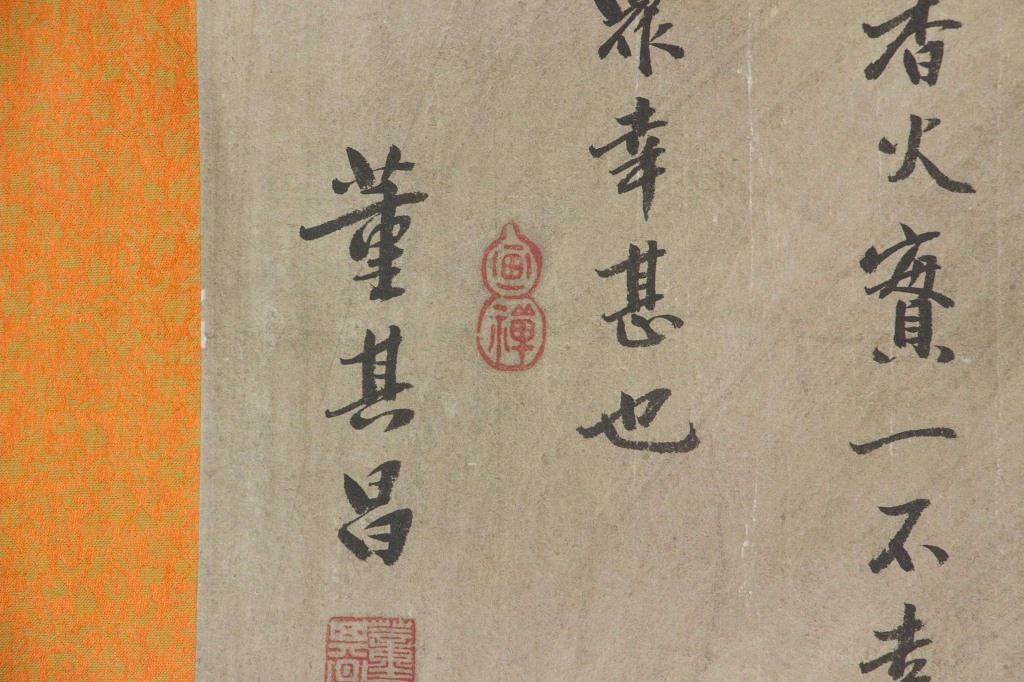 香火實一不
眾幸甚也
禪
董其昌
董